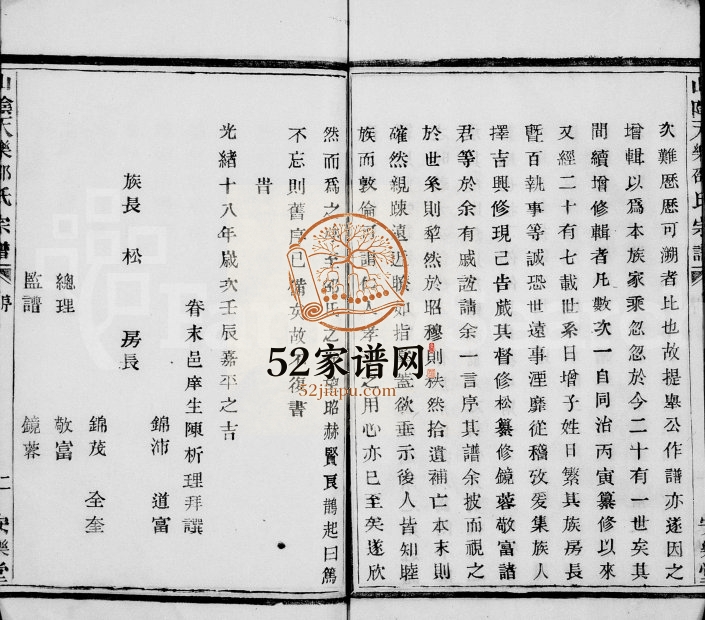 次難歷歷可溯者比也故提舉公作譜亦遂因之
增輯以爲本族家乘忽忽於今二十有一世矣其
間續增修輯者凡數次一自同治丙寅纂修以來
又經二十有七載世系日增子姓日繁其族房長
暨百執事等誠恐世遠事湮靡從稽攷爰集族人
擇吉興修現己告蕆其督修松纂修鏡蓉敬富諸
君等於余有戚誼請余一言序其譜余披而視之
於世系則犂然於昭穆則秩然拾遺補亡本末則
確然親踈遠近瞭如指
欲垂示後人皆知睦
族而敦倫
人孝
之用心亦已至矣遂欣
然而爲之
至邵氏之
昭赫賢良鵲起曰篤
不忘則舊序已備
故
復書
旹
光緒十八年歲次壬辰嘉平之吉
眷末邑庠生陳析理拜譔
族長 松 房長
錦沛 道富
錦茂 全奎
總理 敬富
監譜 鏡蓉
山陰天樂邵氏宗譜
序
二
安樂堂
山陰天樂邵氏宗譜
安樂堂
52家谱网
52jiapu.com